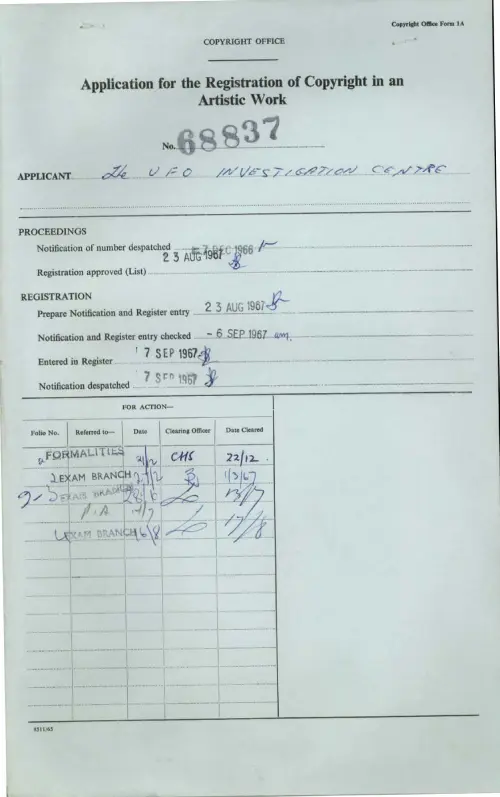 Copyright Office Form 1A
COPYRIGHT OFFICE
Application for the Registration of Copyright in an
Artistic Work
No. 68837
APPLICANT The UFO INVESTIGATION CENTRE
PROCEEDINGS
Notification of number despatched 7 DEC 1966
23 AUG 1967
Registration approved (List)
REGISTRATION
Prepare Notification and Register entry 23 AUG 1967
Notification and Register entry checked - 6 SEP 1967
Entered in Register 7 SEP 1967
Notification despatched 7 SEP 1967
FOR ACTION—
Folio No. Referred to— Date Clearing Officer Date Cleared
FORMALITIES CHS 22/12.
EXAM BRANCH 1/3/67
EXAM BRANCH 13/7
P.A
EXAM BRANCH 16/8 17/8
8511/65